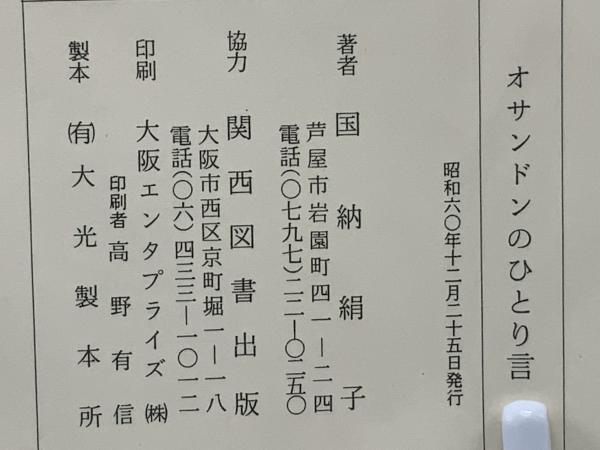 オサンドンのひとり言
昭和六〇年十二月二十五日発行
著者 国納絹子
芦屋市岩園町四一―二四
電話(〇七九七)二二―〇二五〇
協力 関西図書出版
大阪市西区京町堀一―一八
電話(〇六)四三三―一〇一二
印刷 大阪エンタプライズ㈱
印刷者 高野有信
製本 ㈲大光製本所